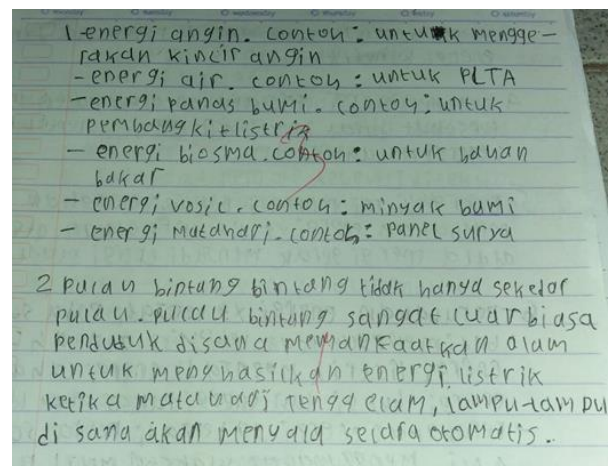 1 -energi angin. contoh: untuk mengge-
rakan kincir angin
-energi air. contoh: untuk PLTA
-energi panas bumi. contoh: untuk
pembangkit listrik
- energi biosma. contoh: untuk bahan
bakar
- energi vosil. contoh: minyak bumi
- energi matahari. contoh: panel surya
2 pulau bintang bintang tidak hanya sekedar
pulau. pulau bintang sangat luar biasa
penduduk disana memanfaatkan alam
untuk menghasilkan energi listrik
ketika matahari tenggelam, lampu-lampu
di sana akan menyala secara otomatis.